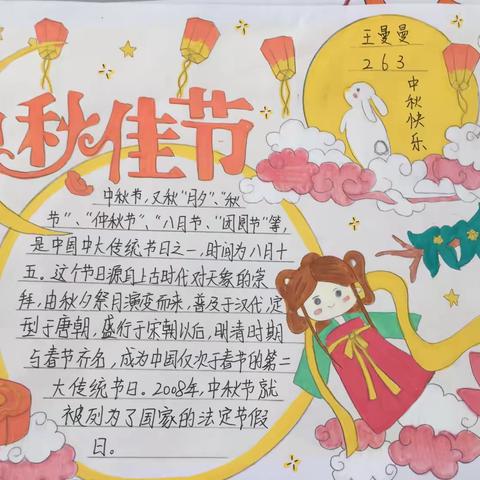 中秋佳节
王曼曼
263
中秋快乐
中秋节,又秋"月夕"、"秋
节"、"仲秋节"、"八月节、"团圆节"等,
是中国中大传统节日之一,时间为八月十
五。这个节日源自上古时代对天象的崇
拜,由秋夕祭月演变而来,普及于汉代,定
型于唐朝,盛行于宋朝以后,明清时期
与春节齐名,成为中国仅次于春节的第二
大传统节日。2008年,中秋节就
被列为了国家的法定节假
日。